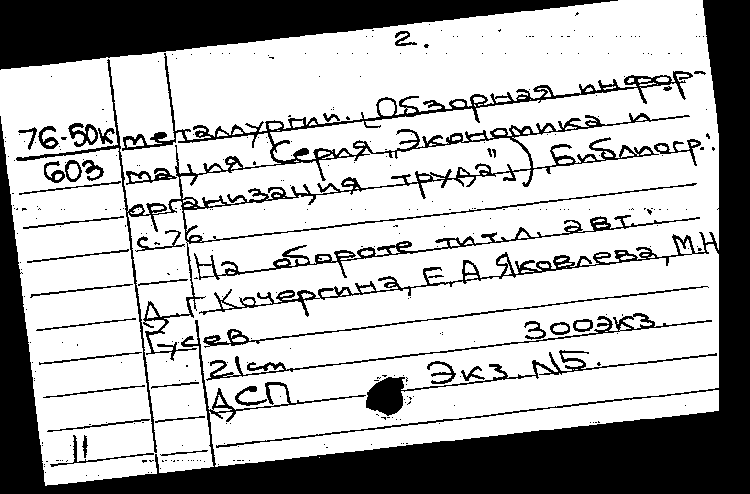 2.
76-50к металлургии. [Обзорная инфор-
603 мация. Серия „Экономика и
организация труда"]), Библиогр.:
с. 76.
На обороте тит. л. авт.:
Д. Г. Кочергина, Е. А. Яковлева, М. Н
Гусев.
21cm. 300экз.
ДСП. Экз. N5.
11